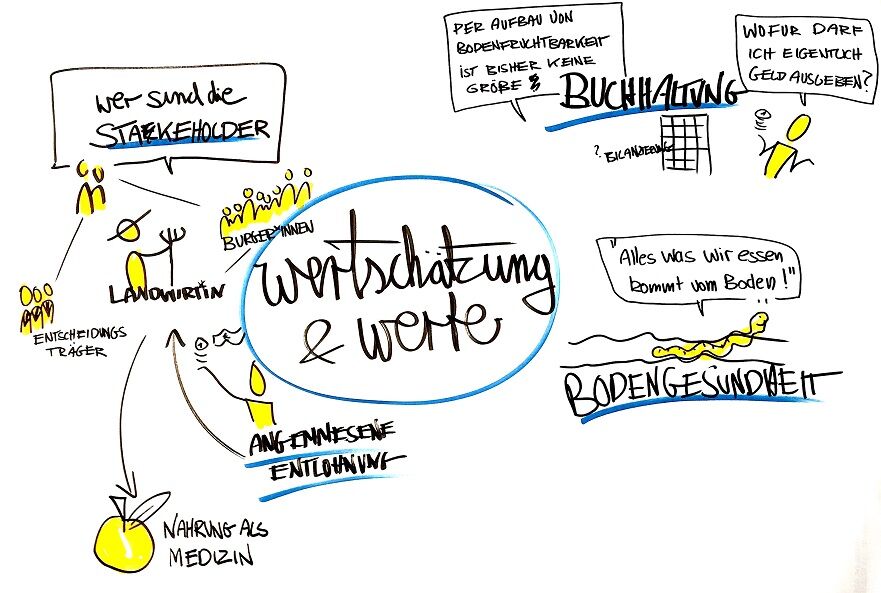 wer sind die
STAKEHOLDER
BÜRGER*INNEN
LANDWIRT*IN
ENTSCHEIDUNGS
TRÄGER
wertschätzung
& werte
ANGEMMESENE
ENTLOHNUNG
NAHRUNG ALS
MEDIZIN
DER AUFBAU VON
BODENFRUCHTBARKEIT
IST BISHER KEINE
GRÖßE
BUCHHALTUNG
? BILANZIERUNG
WOFÜR DARF
ICH EIGENTLICH
GELD AUSGEBEN?
"Alles was wir essen
kommt vom Boden!"
BODENGESUNDHEIT